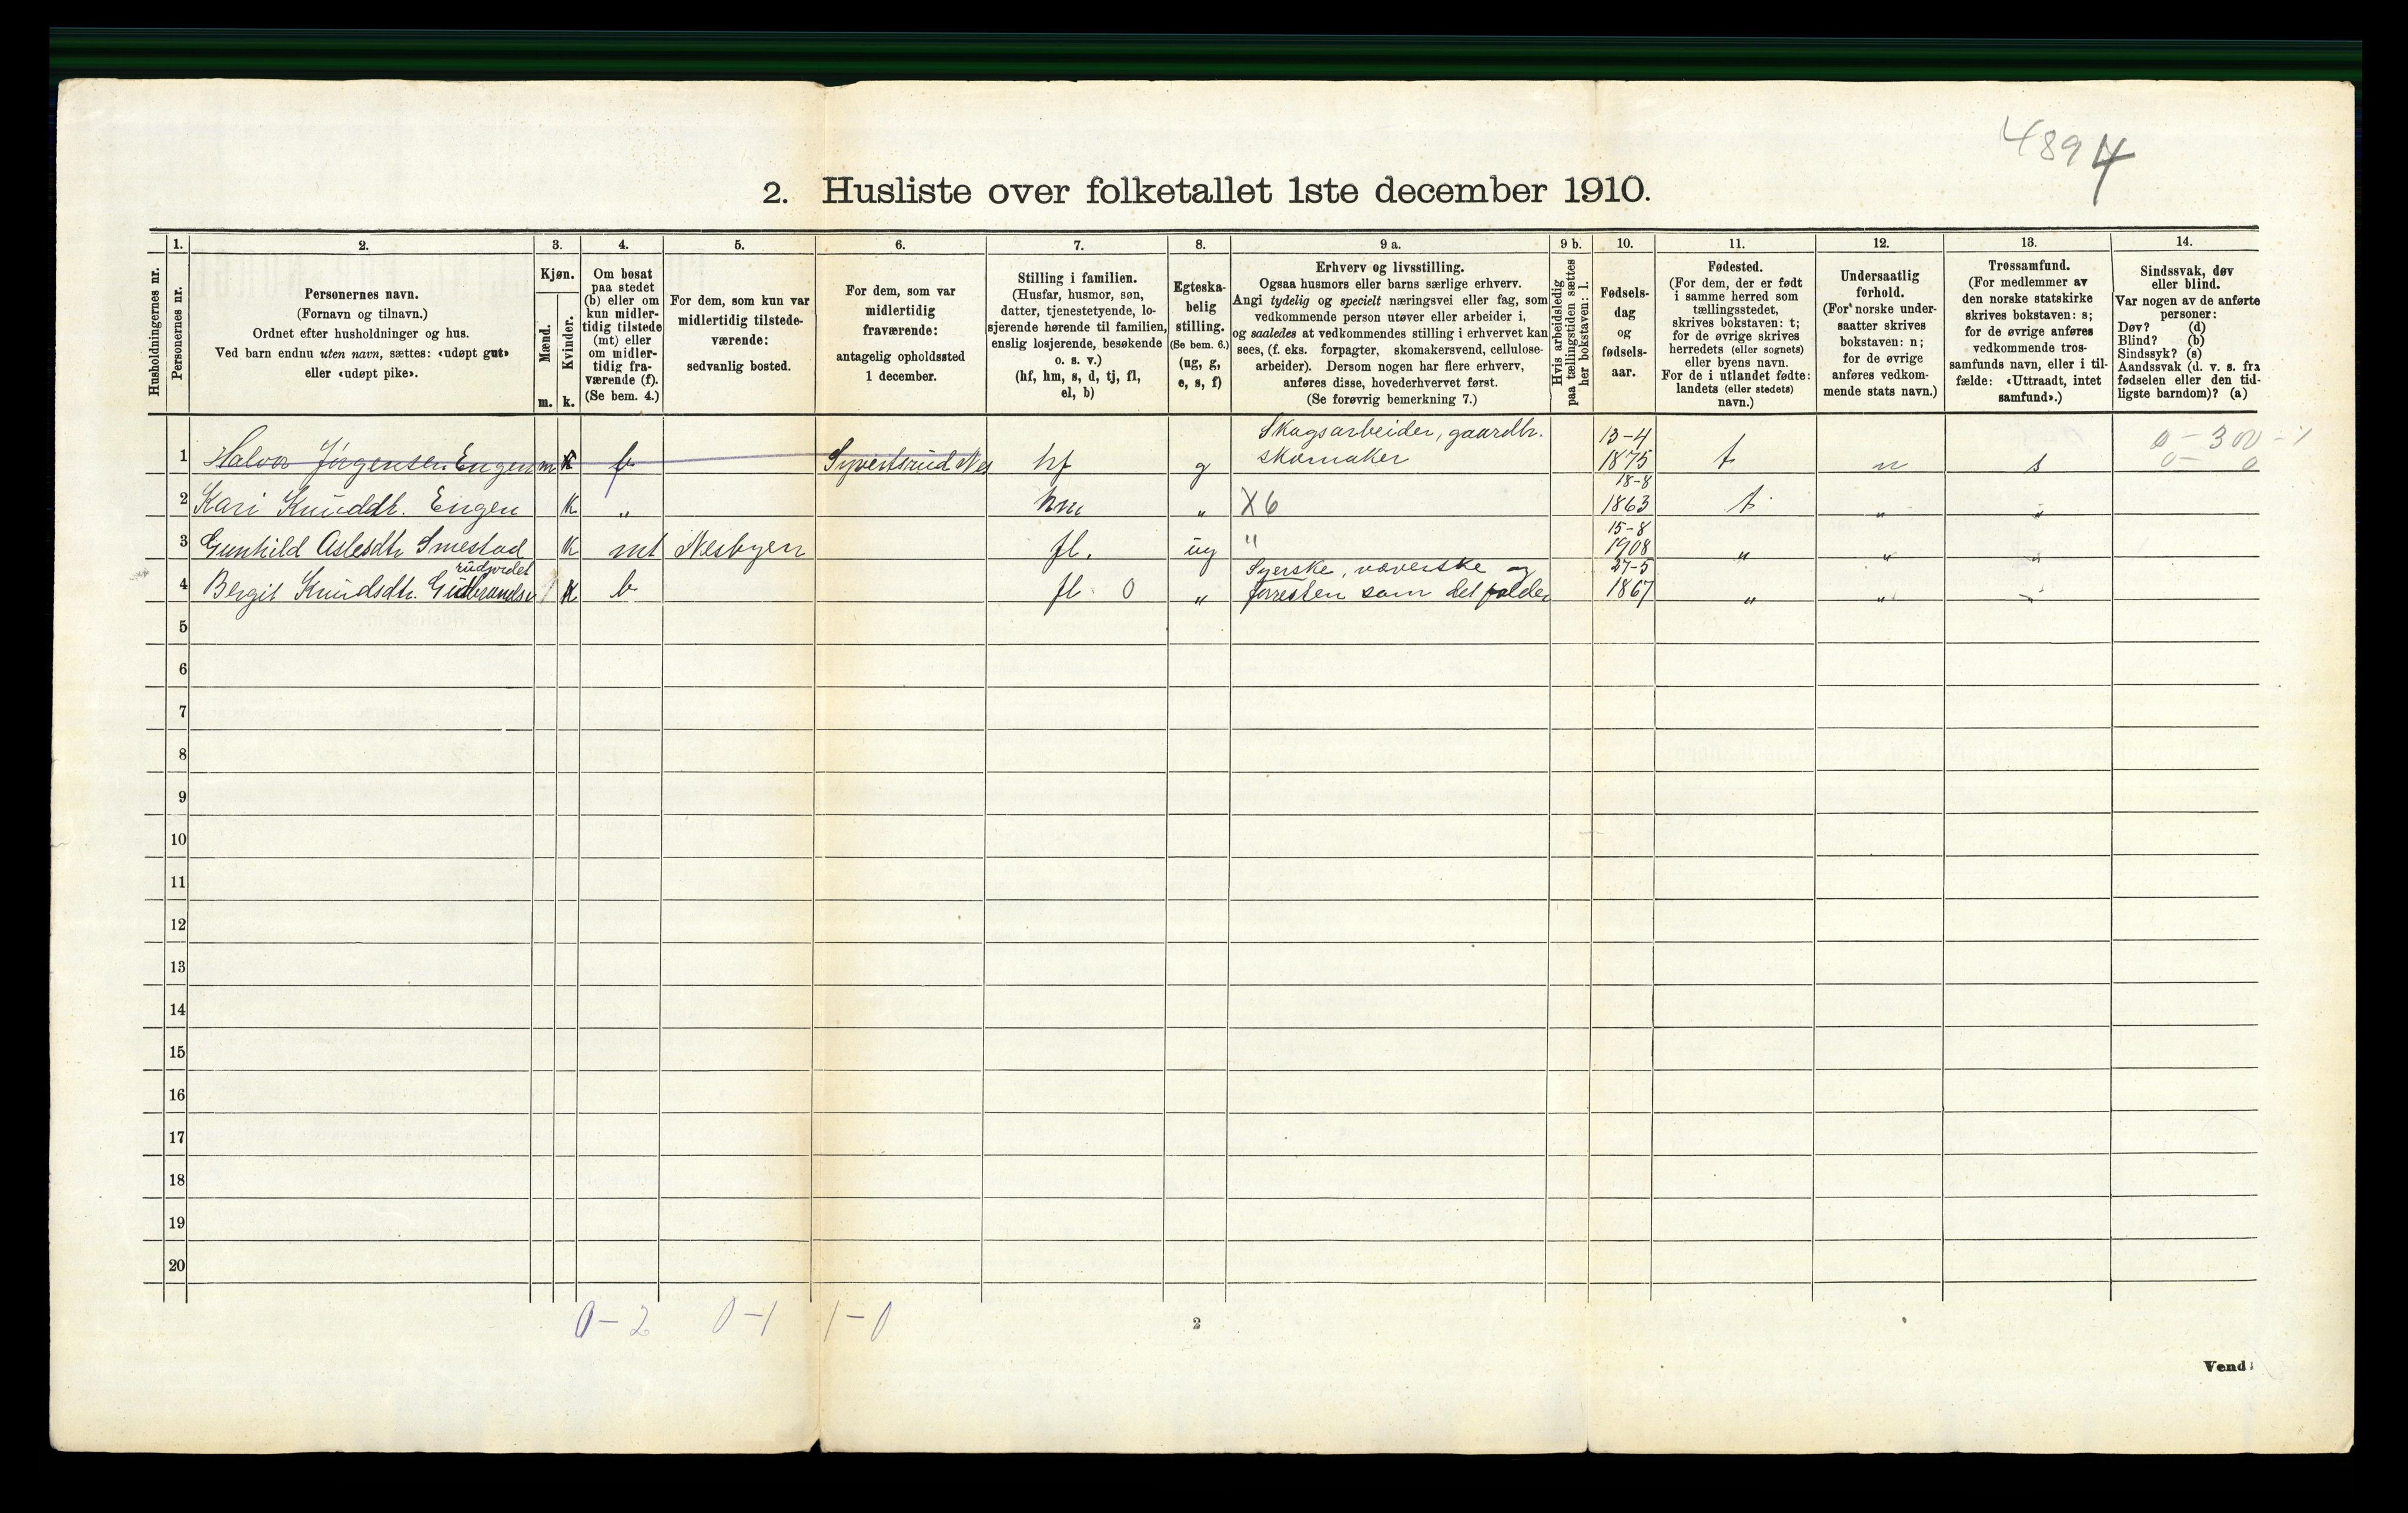 4894
2. Husliste over folketallet 1ste december 1910.
Husholdningernes nr.
1.
Personernes nr.
2.
Personernes navn.
(Fornavn og tilnavn.)
Ordnet efter husholdninger og hus.
Ved barn endnu uten navn, sættes: «udøpt gut»
eller «udøpt pike».
3.
Kjøn.
Mænd.
Kvinder.
m. k.
4.
Om bosat
paa stedet
(b) eller om
kun midler-
tidig tilstede
(mt) eller
om midler-
tidig fra-
værende (f).
(Se bem. 4.)
5.
For dem, som kun var
midlertidig tilstede-
værende:
sedvanlig bosted.
6.
For dem, som var
midlertidig
fraværende:
antagelig opholdssted
1 december.
7.
Stilling i familien.
(Husfar, husmor, søn,
datter, tjenestetyende, lo-
sjerende hørende til familien,
enslig losjerende, besøkende
o. s. v.)
(hf, hm, s, d, tj, fl,
el, b)
8.
Egteska-
belig
stilling.
(Se bem. 6.)
(ug, g,
e, s, f)
9 a.
Erhverv og livsstilling.
Ogsaa husmors eller barns særlige erhverv.
Angi tydelig og specielt næringsvei eller fag, som
vedkommende person utøver eller arbeider i,
og saaledes at vedkommendes stilling i erhvervet kan
sees, (f. eks. forpagter, skomakersvend, cellulose-
arbeider). Dersom nogen har flere erhverv,
anføres disse, hovederhvervet først.
(Se forøvrig bemerkning 7.)
9 b.
Hvis arbeidsledig
paa tællingstiden sættes
her bokstaven: l.
10.
Fødsels-
dag
og
fødsels-
aar.
11.
Fødested.
(For dem, der er født
i samme herred som
tællingsstedet,
skrives bokstaven: t;
for de øvrige skrives
herredets (eller sognets)
eller byens navn.
For de i utlandet fødte:
landets (eller stedets)
navn.)
12.
Undersaatlig
forhold.
(For norske under-
saatter skrives
bokstaven: n;
for de øvrige
anføres vedkom-
mende stats navn.)
13.
Trossamfund.
(For medlemmer av
den norske statskirke
skrives bokstaven: s;
for de øvrige anføres
vedkommende tros-
samfunds navn, eller i til-
fælde: «Uttraadt, intet
samfund».)
14.
Sindssvak, døv
eller blind.
Var nogen av de anførte
personer:
Døv? (d)
Blind? (b)
Sindssyk? (s)
Aandssvak (d. v. s. fra
fødselen eller den tid-
ligste barndom)? (a)
Skogsarbeider, gaardbr. 13-4 0-300-1
1 Halvor Jørgensen Engen m b Syvertsrud Nes hf g skomaker 1875 t n s 0- 0
18-8
2 Kari Knuddtr. Engen k " hm " X6 1863 t " "
15-8
3 Gunhild Aslesdtr Smestad k mt Nesbyen fl. ug " 1908 " " "
rudjordet Syerske, væverske og 27-5
4 Bergit Knudsdtr. Gudbrands k b fl 0 " forresten som det falder 1867 " " "
5
6
7
8
9
10
11
12
13
14
15
16
17
18
19
20
0-2 0-1 1-0
2
Vend!